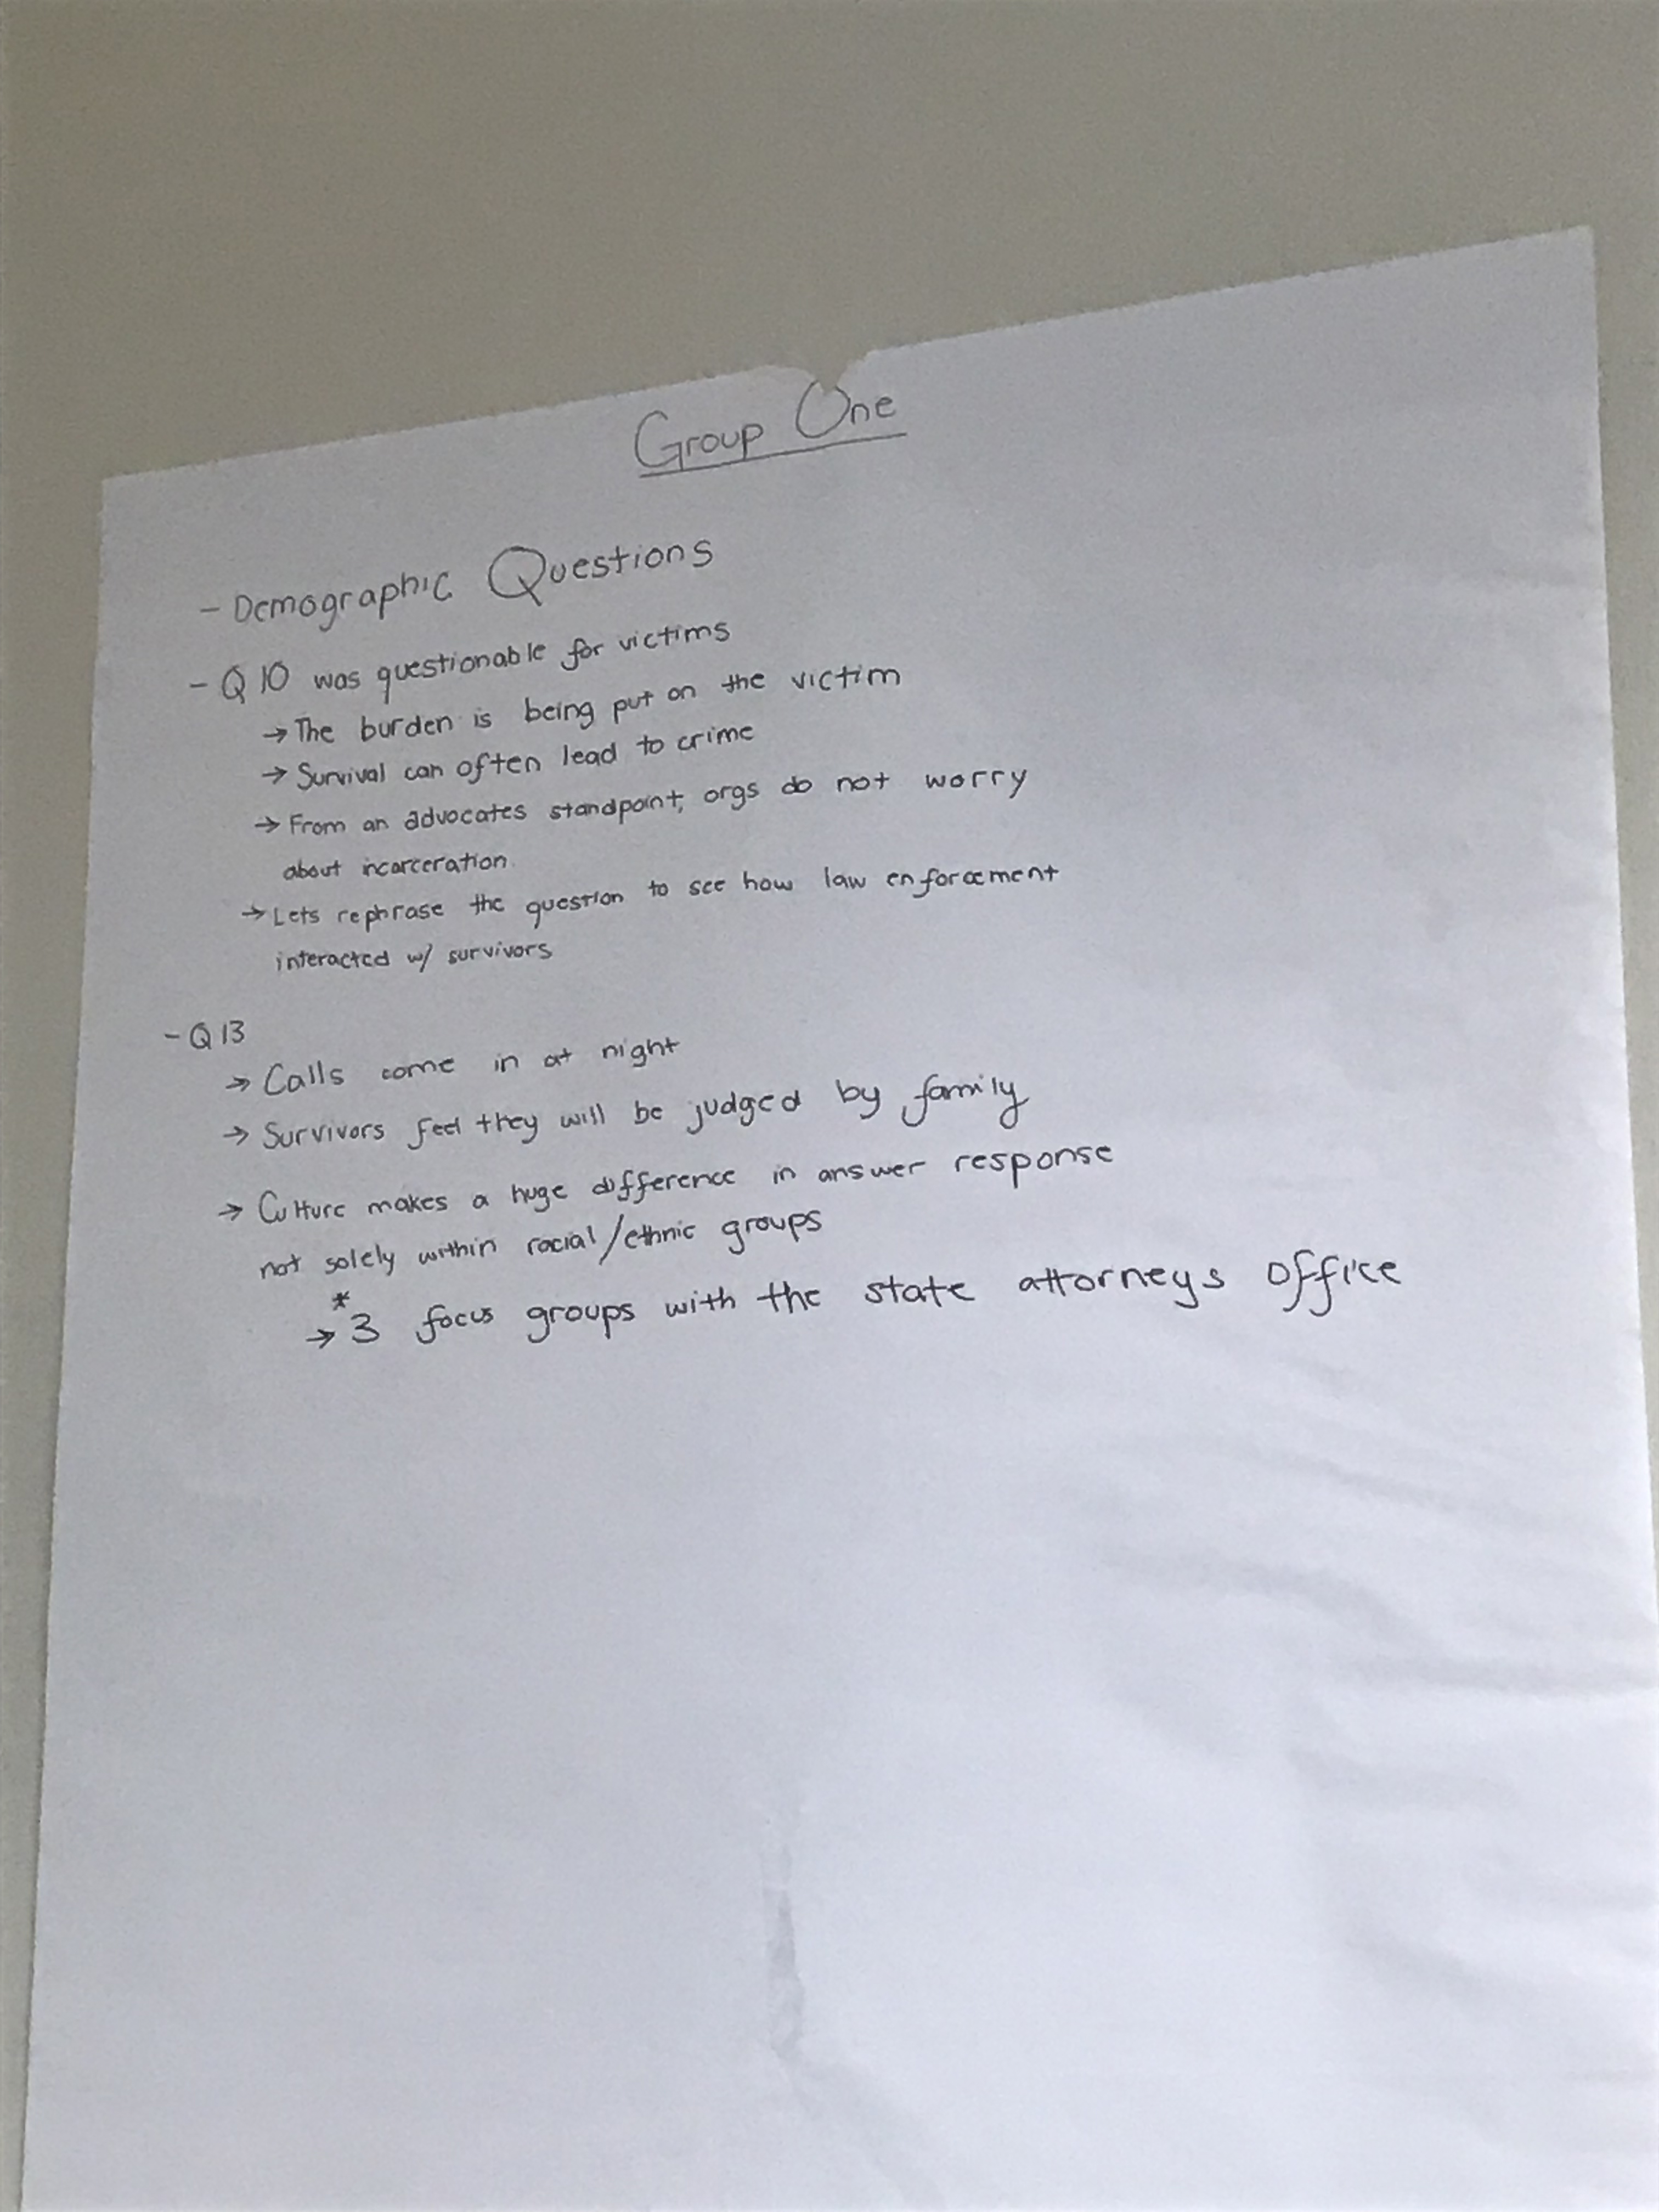 Group One
- Demographic Questions
- Q 10 was questionable for victims
→ The burden is being put on the victim
→ Survival can often lead to crime
→ From an advocates standpoint, orgs do not worry
about incarceration.
→ Lets rephrase the question to see how law enforcement
interacted w/ survivors
- Q 13
→ Calls come in at night
→ Survivors feel they will be judged by family
→ Culture makes a huge difference in answer response
not solely within racial/ethnic groups
*
→ 3 focus groups with the state attorneys office